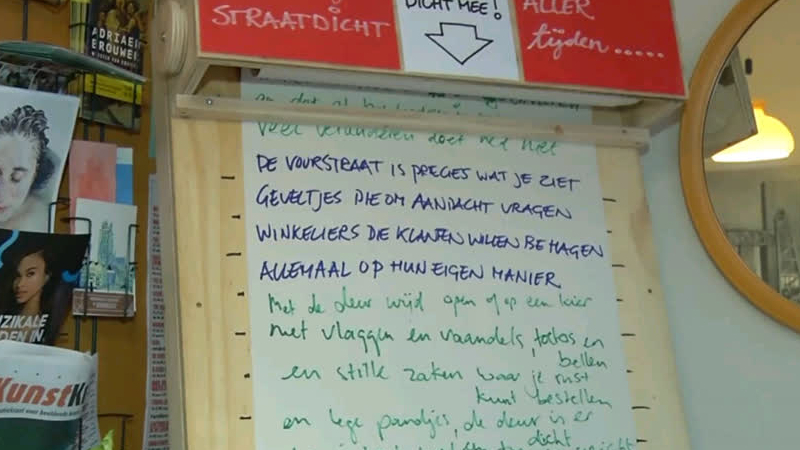 STRAATDICHT
DICHT MEE!
ALLER
tijden.....
ADRIAEN
BROUWER
veel veranderen doet hed niet
DE VOORSTRAAT IS PRECIES WAT JE ZIET
GEVELTJES DIE OM AANDACHT VRAGEN
WINKELIERS DE KLANTEN WILLEN BEHAGEN
ALLEMAAL OP HUN EIGEN MANIER
Met de deur wijd open of op een kier
met vlaggen en vaandels, toetos en
bellen
en stille zaken waar je rust
kunt bestellen
en lege pandjes, de deur is er
dicht
ZIKALE
DEN IN.
KunstK